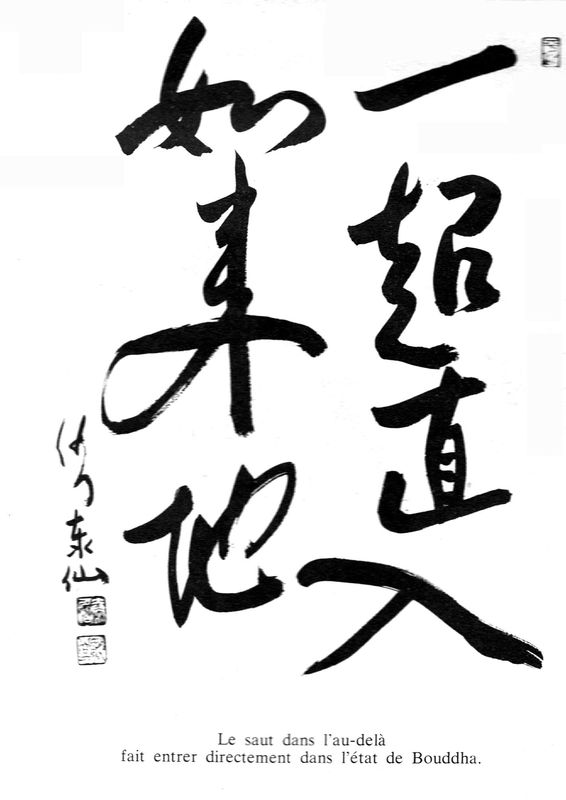 一超直入
如来地
泰仙
Le saut dans l'au-delà
fait entrer directement dans l'état de Bouddha.